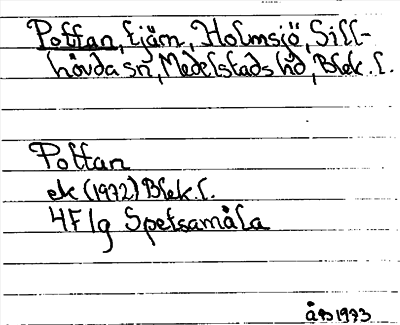 Pottan, tjärn, Holmsjö, Sill-
hövda sn, Medelstads hd, Blek. l.
Pottan
ek (1972) Blek. l.
4F1g Spetsamåla
ÅB 1973